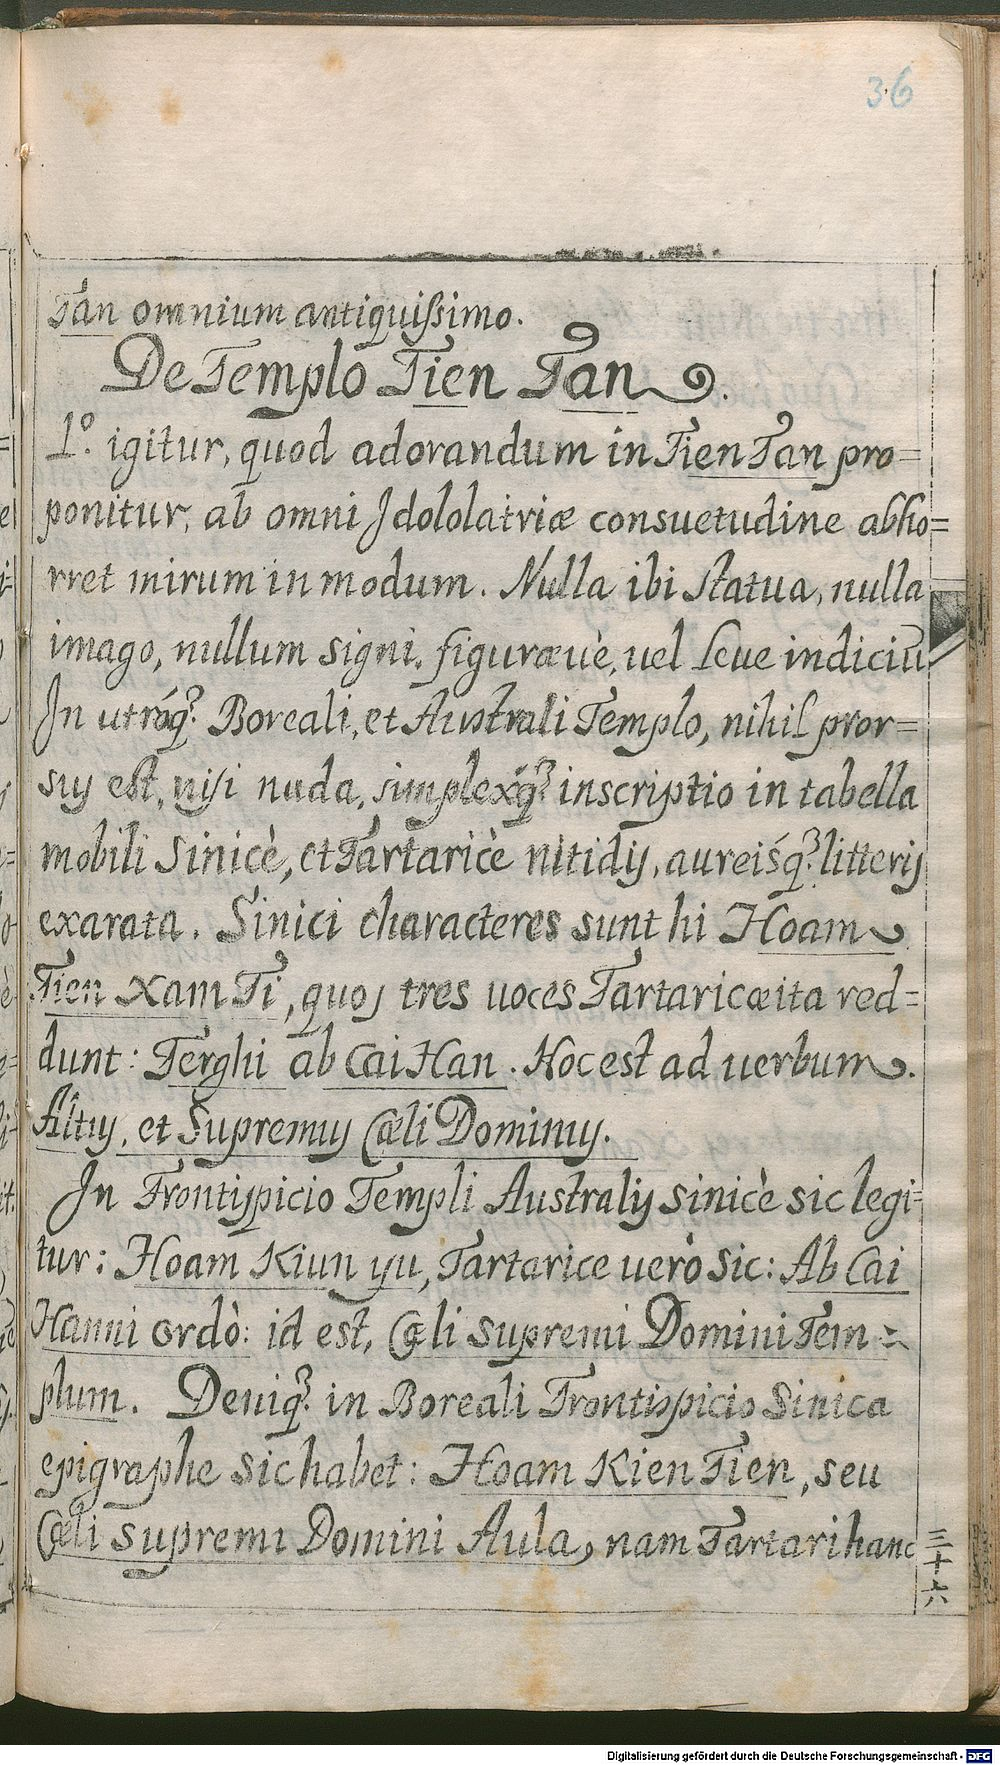 36
Tan omnium antiquißimo.
De Templo Tien Tan.
1º. igitur, quod adorandum in Tien Tan pro=
ponitur, ab omni Idololatriæ consuetudine abho=
rret mirum in modum. Nulla ibi statua, nulla
imago, nullum signi, figuræuè, uel leue indiciũ
In utráq́ꝫ Boreali, et Australi Templo, nihil pror=
sus est, nisi nuda, simplexq́ꝫ inscriptio in tabella
mobili Sinicè, et Tartaricè nitidis, aureisq́ꝫ litteris
exarata. Sinici characteres sunt hi Hoam
Tien Xam Ti, quos tres uoces Tartaricæ ita red=
dunt: Terghi ab Cai Han. Hoc est ad uerbum.
Altus, et Supremus Cæli Dominus.
In Frontispicio Templi Australis sinicè sic legi=
tur: Hoam Kiun yu, Tartarice uerò sic: Ab Cai
Hanni ordò: id est, Cæli supremi Domini Tem=
plum. Deniq́ꝫ in Boreali Frontispicio Sinica
epigraphe sic habet: Hoam Kien Tien, seu
Cæli supremi Domini Aula, nam Tartari hanc
三十六
Digitalisierung gefördert durch die Deutsche Forschungsgemeinschaft - DFG